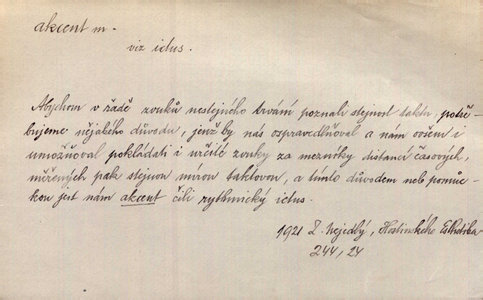 akcent m.
viz ictus.
Abychom v řadě zvuků nestejného trvání poznali stejnost taktu, potře-
bujeme nějakého důvodu, jenž by nás ospravedlňoval a nám ovšem i
umožňoval pokládati i určité zvuky za mezníky distancí časových,
měřených pak stejnou mírou taktovou, a tímto důvodem neb pomůc-
kou jest nám akcent čili rytmický ictus.
1921 Z. Nejedlý, Hostinského Esthetika
244, 24